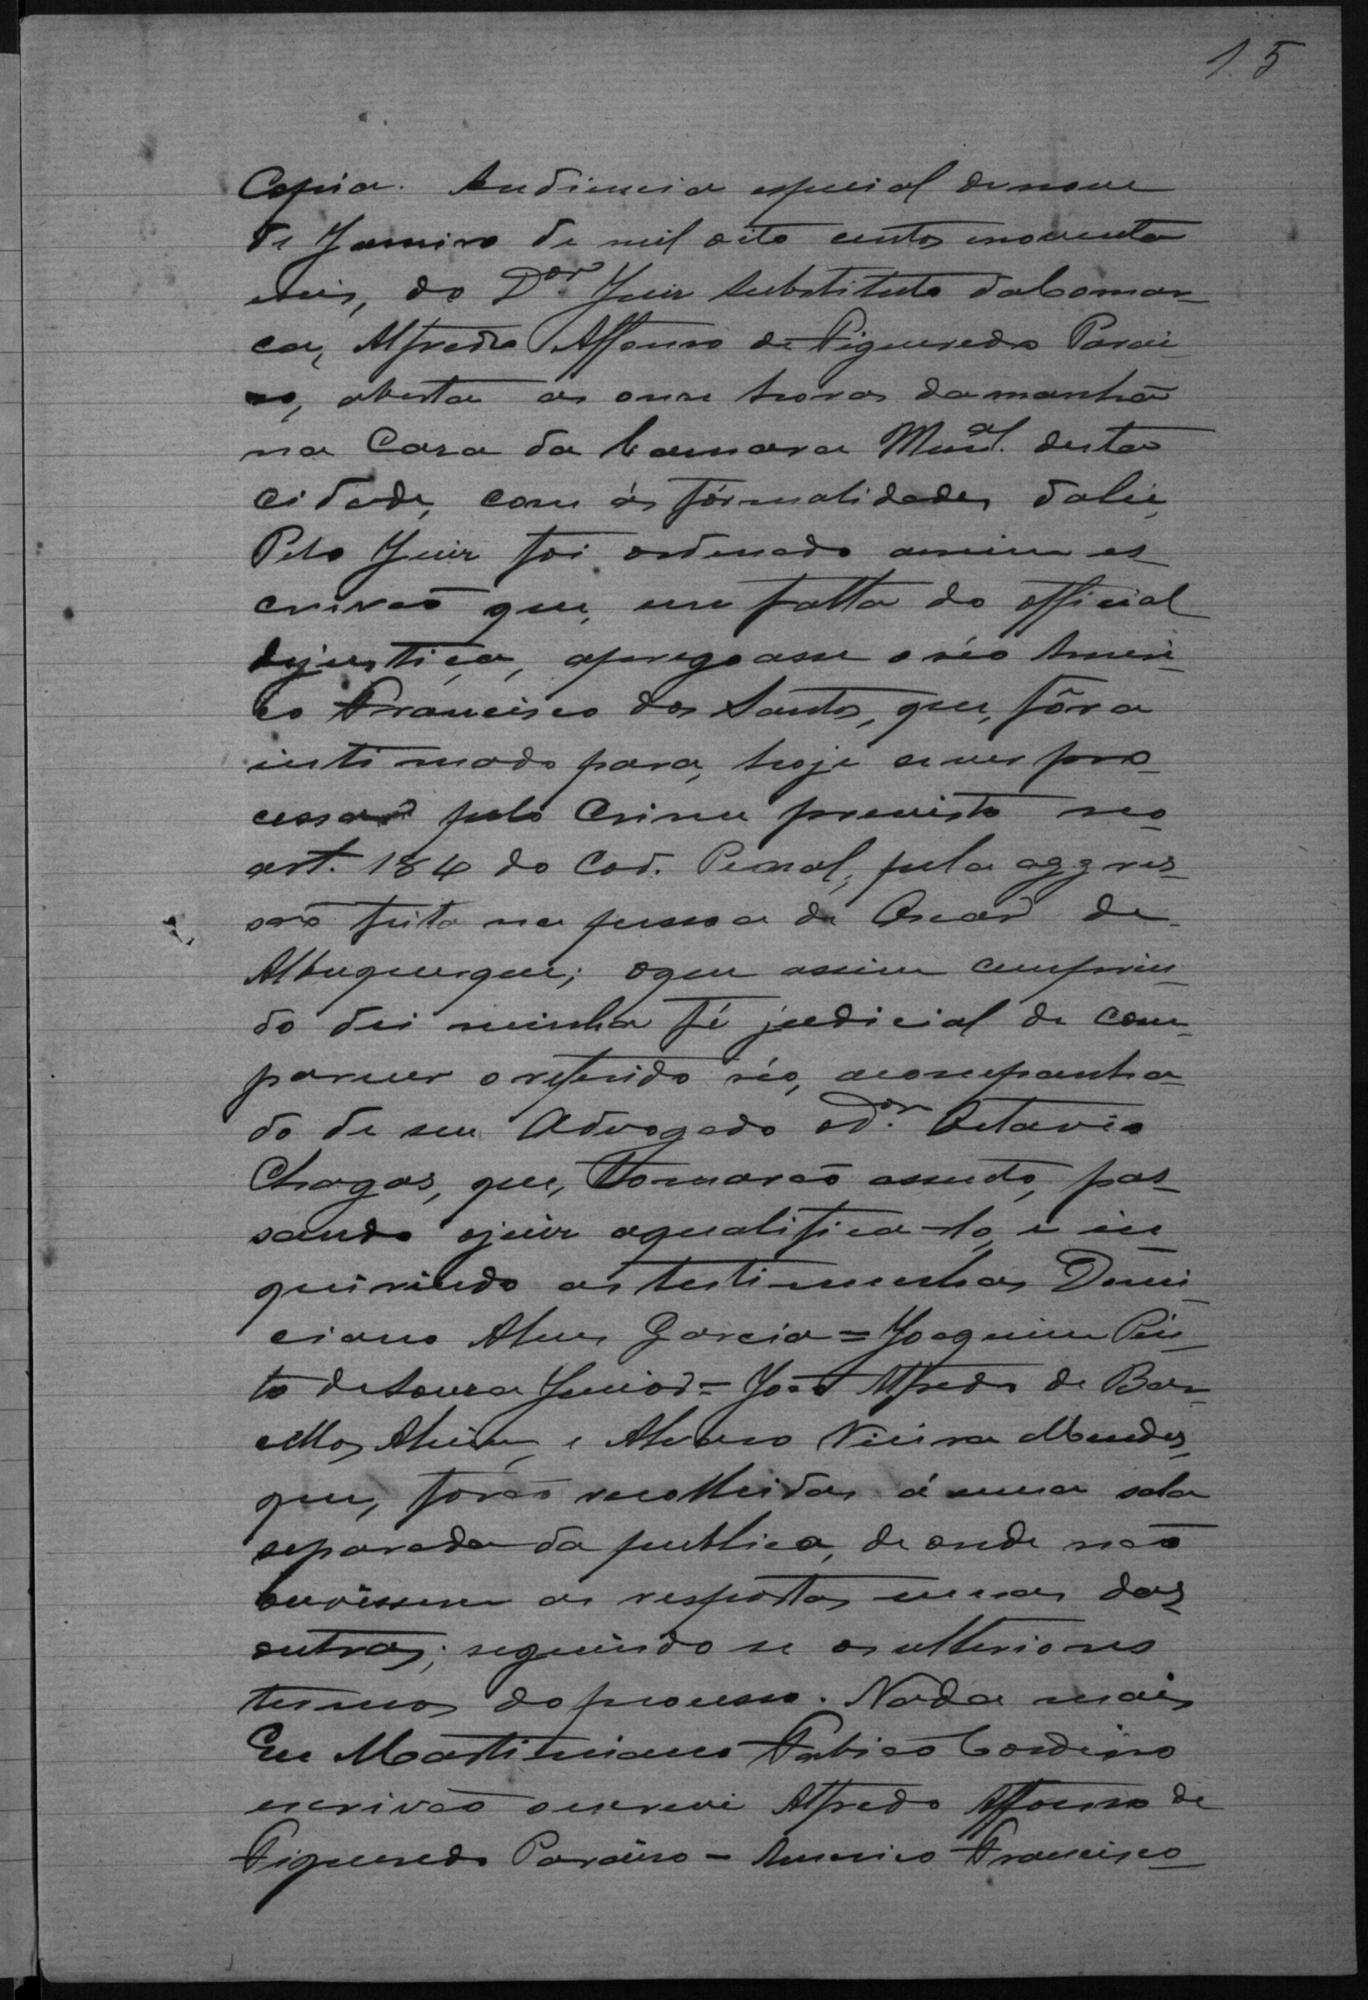 15
Copia. Audiencia especial de nove
de Janeiro de mil oito centos e noventa
e seis, do Dor. Juiz Substituto da Comar-
ca, Alfredo Affonso de Figueredo Parai-
so, aberta as onze horas da manhã
na Casa da Camara Munal. desta
cidade, com ás fórmalidades da lei,
Pelo Juiz foi ordenado a mim es-
crivão que, em falta do official
dejustiça, apregoasse o réo Ameri-
co Francisco dos Santos, que, fôra
intimado para, hoje se ver pro-
cessar pelo Crime previsto no
art. 184 do Cod. Penal, pela aggres-
são feita na pessoa de Oscar de
Albuquerque; o que assim cumprin-
do dei minha fé judicial de com-
parecer o referido réo, acompanha-
do de seu Advogado o Dor. Octavio
Chagas, que, tomarão assento, pas-
sando o juiz a qualifica-lo, e in-
quirindo as testimunhas Domi-
ciano Alves Garcia = Joaquim Pin-
to de Souza Junior = João Alfredo de Bar-
cellos e Alvaro Vieira Mendes,
que, forão recolhidas á uma sala
separada da publica, de onde não
ouvissem as respostas umas das
outras; seguindo se os ulteriores
termos do processo. Nada mais
Eu Martiniano Cordeiro
escrivão o escrevi Alfredo Affonso de
Figueredo Paraiso – Americo Francisco